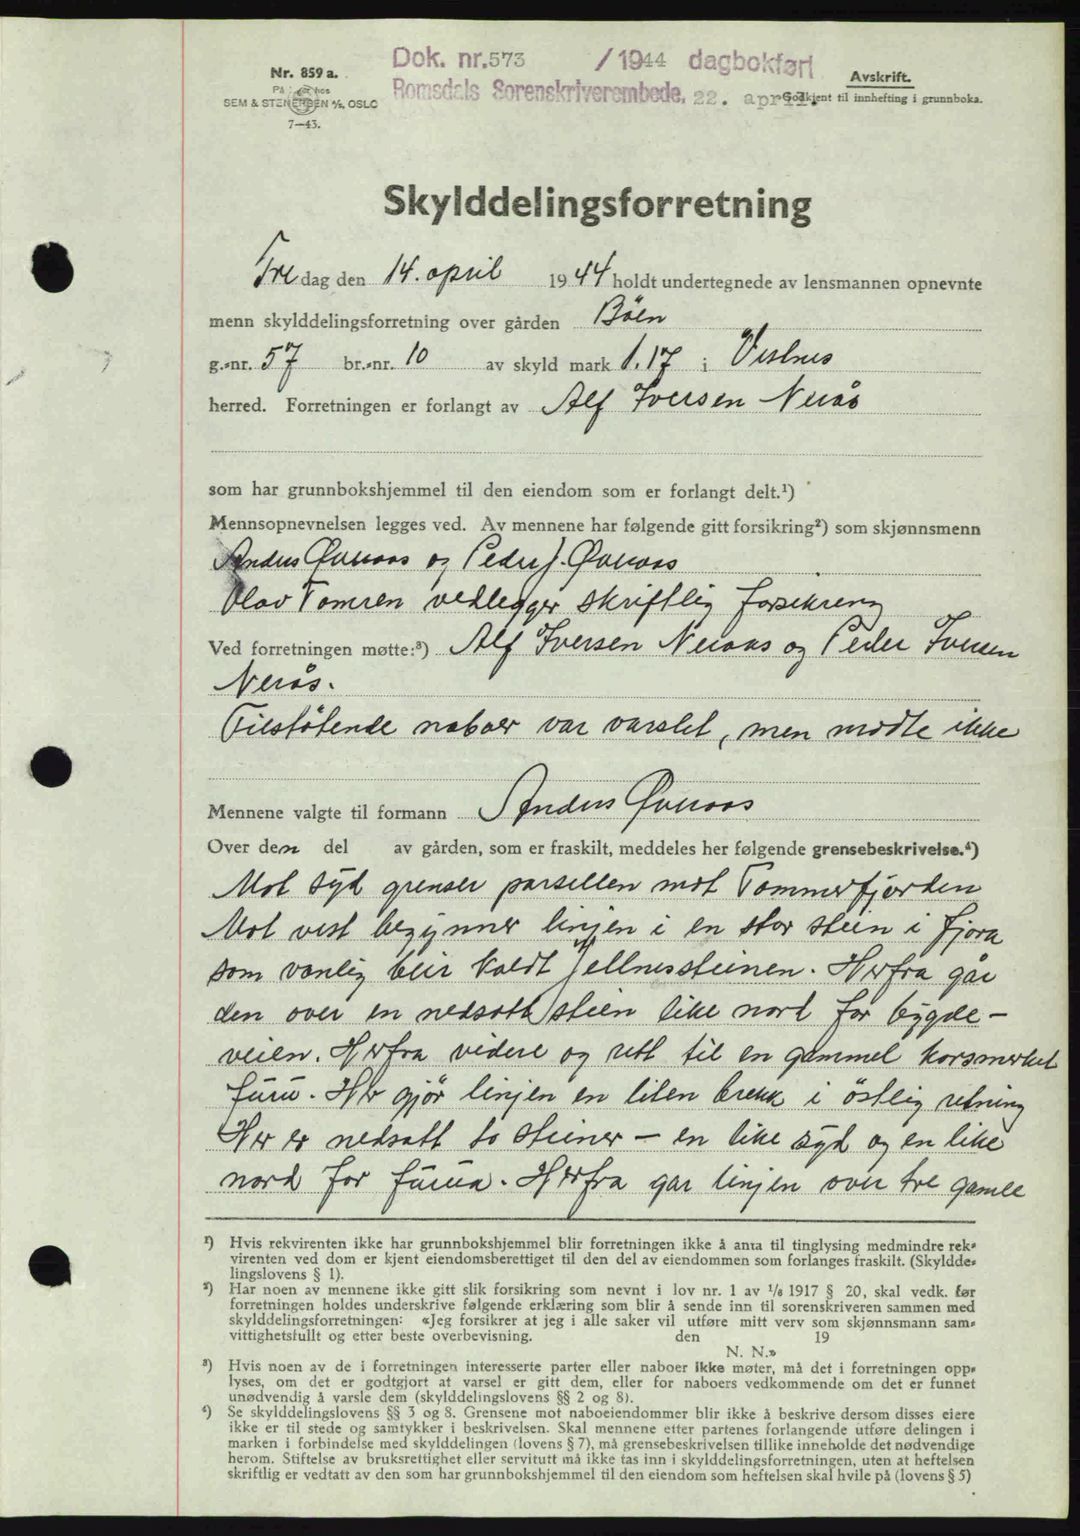 Dok. nr. 573 / 1944 dagbokført
Romsdals Sorenskriverembede, 22. april.
Nr. 859 a.
På hos
SEM & STENERSEN A/S, OSLO
7—43.
Avskrift.
Godkjent til innhefting i grunnboka.
Skylddelingsforretning
Fre dag den 14. april 1944 holdt undertegnede av lensmannen opnevnte
menn skylddelingsforretning over gården Böen
g.-nr. 57 br.-nr. 10 av skyld mark 1.17 i Vestnes
herred. Forretningen er forlangt av Alf Iversen Nerås
som har grunnbokshjemmel til den eiendom som er forlangt delt.¹)
Mennsopnevnelsen legges ved. Av mennene har følgende gitt forsikring²) som skjønnsmenn
Anders Øveraas og Peder J. Øveraas
Olav Tomren vedlegger skriftlig forsikring
Ved forretningen møtte:³) Alf Iversen Neraas og Peder Iversen
Nerås.
Tilstøtende naboer var varslet, men mødte ikke
Mennene valgte til formann Anders Øveraas
Over den del av gården, som er fraskilt, meddeles her følgende grensebeskrivelse.⁴)
Mot syd grenser parsellen mot Tommerfjorden
Mot vest begynner linjen i en stor stein i fjøra
som vanlig blir kaldt Jellnessteinen. Herfra går
den over en nedsatt stein like nord for bygde-
veien. Herfra videre og rett til en gammel korsmerket
furu. Her gjør linjen en liten brekk i östlig retning
Her er nedsatt to steiner — en like syd og en like
nord for furua. Herfra gar linjen over tre gamle
¹) Hvis rekvirenten ikke har grunnbokshjemmel blir forretningen ikke å anta til tinglysing medmindre rek-
virenten ved dom er kjent eiendomsberettiget til den del av eiendommen som forlanges fraskilt. (Skyldde-
lingslovens § 1).
²) Har noen av mennene ikke gitt slik forsikring som nevnt i lov nr. 1 av ¹/₆ 1917 § 20, skal vedk. før
forretningen holdes underskrive følgende erklæring som blir å sende inn til sorenskriveren sammen med
skylddelingsforretningen: «Jeg forsikrer at jeg i alle saker vil utføre mitt verv som skjønnsmann sam-
vittighetsfullt og etter beste overbevisning. den 19
N. N.»
³) Hvis noen av de i forretningen interesserte parter eller naboer ikke møter, må det i forretningen opp-
lyses, om det er godtgjort at varsel er gitt dem, eller for naboers vedkommende om det er funnet
unødvendig å varsle dem (skylddelingslovens §§ 2 og 8).
⁴) Se skylddelingslovens §§ 3 og 8. Grensene mot naboeiendommer blir ikke å beskrive dersom disses eiere
ikke er til stede og samtykker i beskrivelsen. Skal mennene etter partenes forlangende utføre delingen i
marken i forbindelse med skylddelingen (lovens § 7), må grensebeskrivelsen tillike inneholde det nødvendige
herom. Stiftelse av bruksrettighet eller servitutt må ikke tas inn i skylddelingsforretningen, uten at heftelsen
skriftlig er vedtatt av den som har grunnbokshjemmel til den eiendom som heftelsen skal hvile på (lovens § 5)